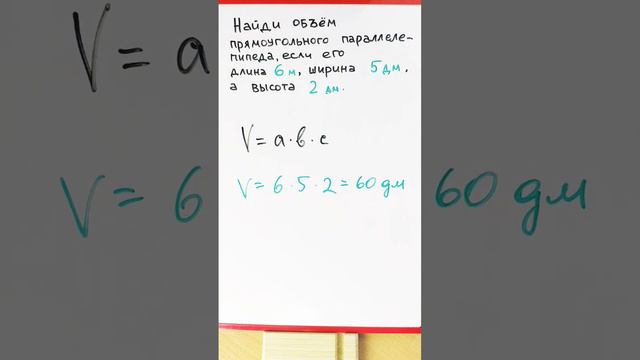 Найди объём
прямоугольного параллеле-
пипеда, если его
длина 6 м, ширина 5 дм,
а высота 2 дм.
V = a · b · c
V = 6 · 5 · 2 = 60 дм
V = a
V = 6
60 дм